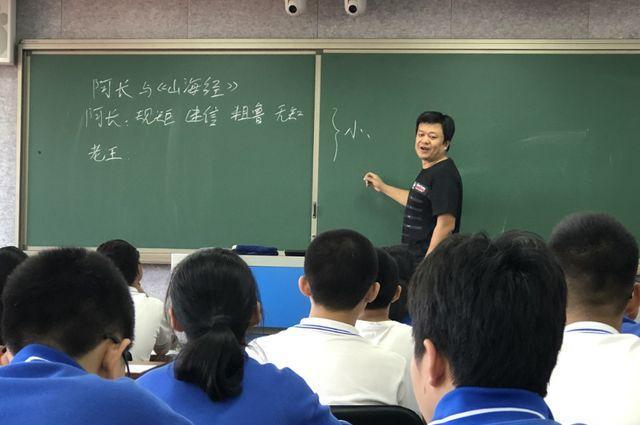 阿长与《山海经》
阿长：规矩 迷信 粗鲁 无知
老王
小